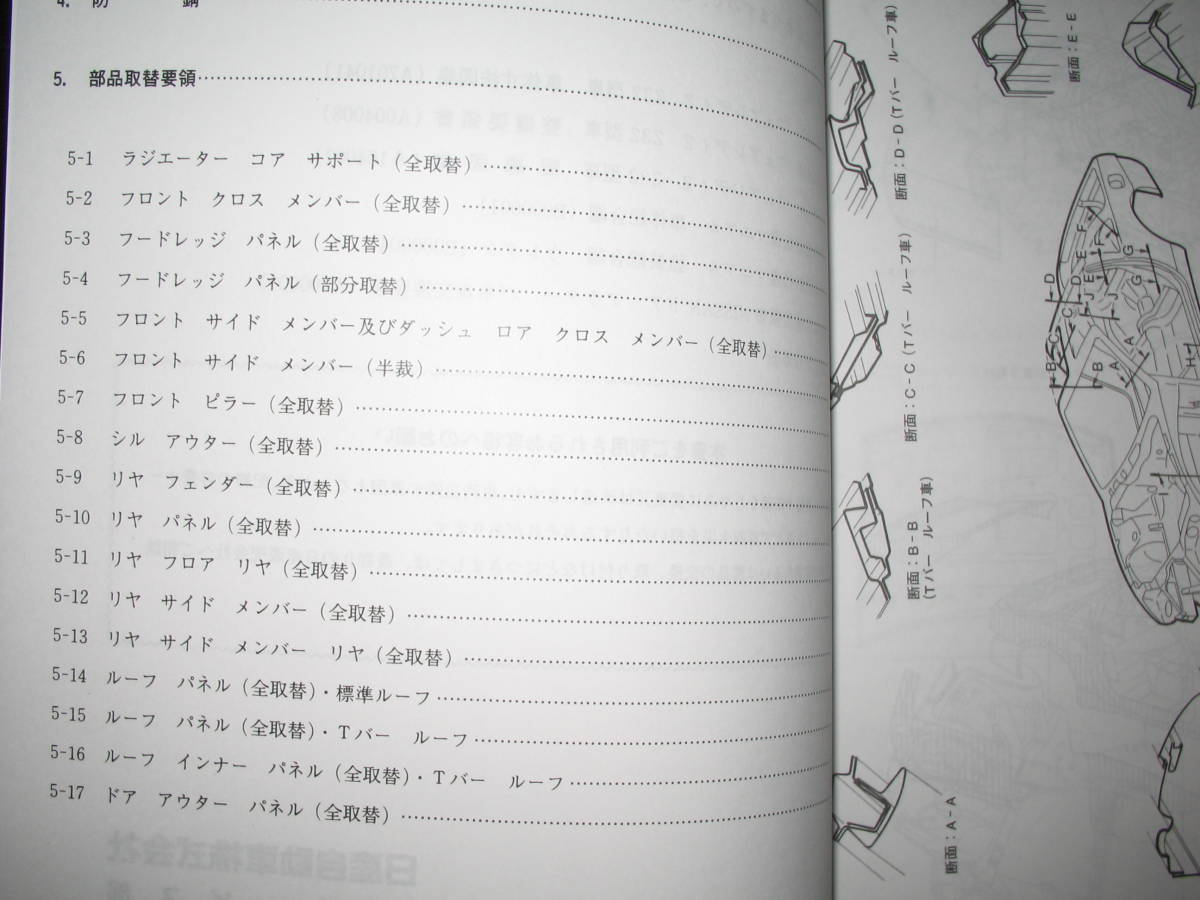 4. 防 錆
5. 部品取替要領
5-1 ラジエーター コア サポート(全取替)
5-2 フロント クロス メンバー(全取替)
5-3 フードレッジ パネル(全取替)
5-4 フードレッジ パネル(部分取替)
5-5 フロント サイド メンバー及びダッシュ ロア クロス メンバー(全取替)
5-6 フロント サイド メンバー(半裁)
5-7 フロント ピラー(全取替)
5-8 シル アウター(全取替)
5-9 リヤ フェンダー(全取替)
5-10 リヤ パネル(全取替)
5-11 リヤ フロア リヤ(全取替)
5-12 リヤ サイド メンバー(全取替)
5-13 リヤ サイド メンバー リヤ(全取替)
5-14 ルーフ パネル(全取替)・標準ルーフ
5-15 ルーフ パネル(全取替)・Tバー ルーフ
5-16 ルーフ インナー パネル(全取替)・Tバー ルーフ
5-17 ドア アウター パネル(全取替)
日産自動車株式会社
断面:E-E
断面:D-D(Tバー ルーフ車)
断面:C-C(Tバー ルーフ車)
断面:B-B
(Tバー ルーフ車)
断面:A-A
D
D
F
F
E
E
G
G
J
J
C
C
B
B
A
A
H
I